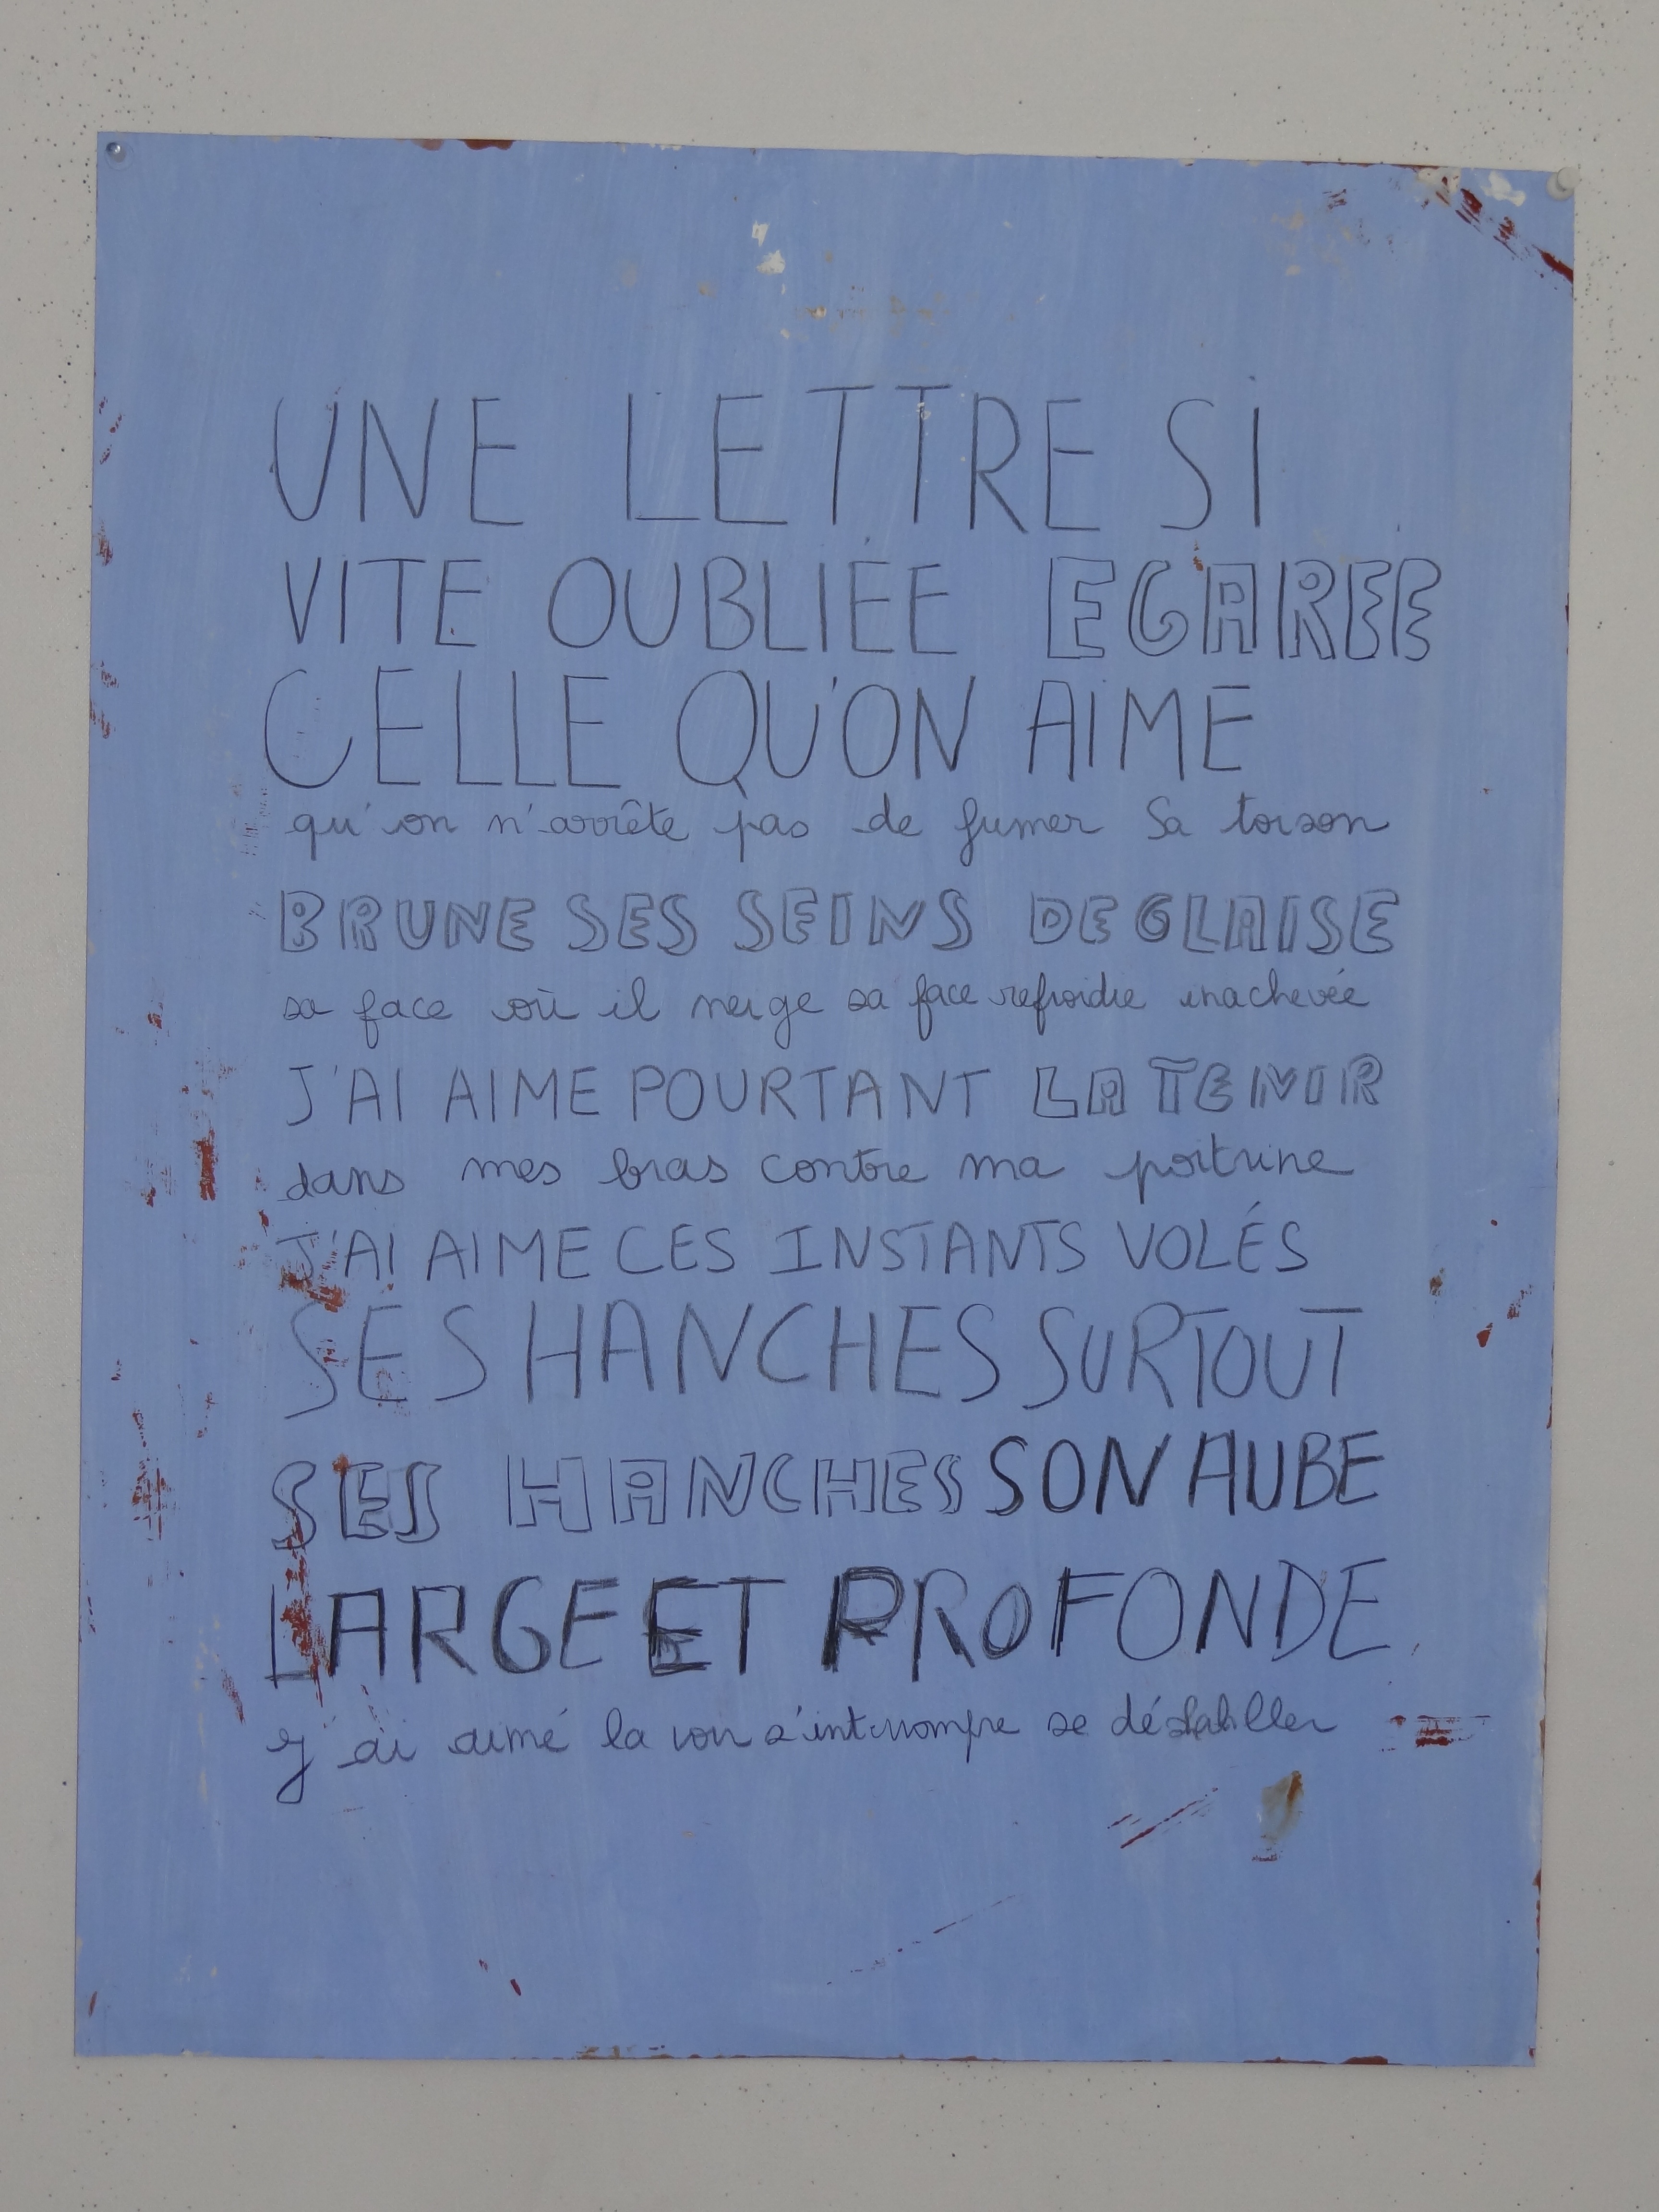 UNE LETTRE SI
VITE OUBLIÉE EGAREE
CELLE QU'ON AIME
qu'on n'arrête pas de fumer Sa toison
BRUNE SES SEINS DE GLAISE
sa face où il neige sa face refroidie inachevée
J'AI AIME POURTANT LA TENIR
dans mes bras contre ma poitrine
J'AI AIME CES INSTANTS VOLÉS
SES HANCHES SURTOUT
SES HANCHES SON AUBE
LARGE ET PROFONDE
j'ai aimé la voir s'interrompre se déshabiller